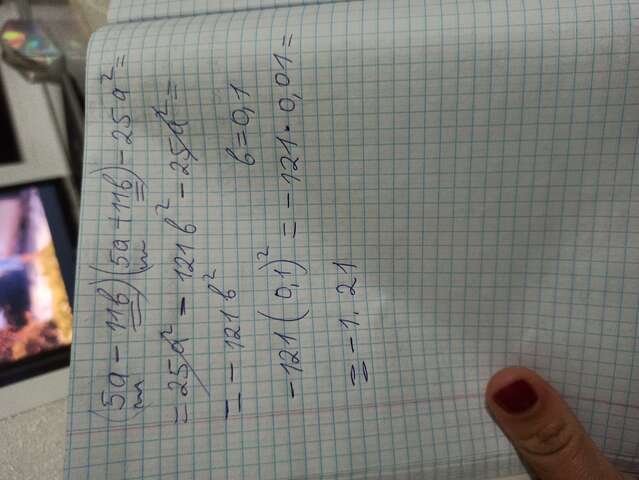 (5a - 11b)(5a + 11b) - 25a² =
= 25a² - 121b² - 25a² =
= - 121b²     b = 0,1
-121(0,1)² = -121 · 0,01 =
= -1,21